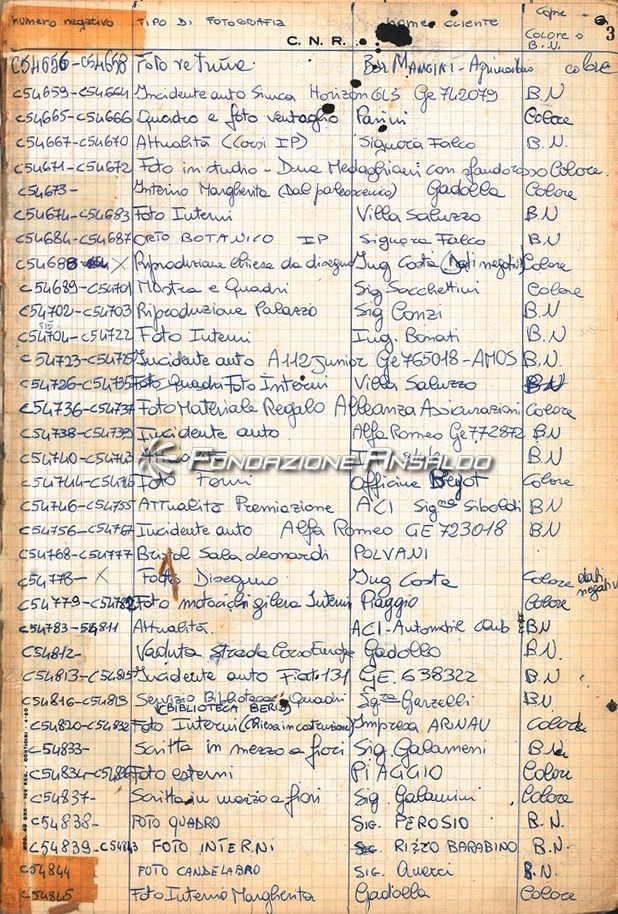 numero negativo TIPO DI FOTOGRAFIA nome cliente Copie Colore o B.N.
C.N.R. 3
C54656-C54658 Foto vetrina Bar MANGINI- colore
C54659-C54664 Incidente auto Simca Horizon GLS Ge 742079 B.N
C54665-C54666 Quadro e foto ventaglio Parini Colore
C54667-C54670 Attualità (Corsi IP) Signora Falco B.N.
C54671-C54672 Foto in studio - Due Medaglioni con sfondo rosso Colore.
C54673- Interino Margherita (Dal palcoscenico) Gadolla Colore
C54674-C54683 Foto Interni Villa Saluzzo B.N
C54684-C54687 ORTO BOTANICO IP Signora Falco B.N
C54688 X Riproduzione chiese da disegno Ing Costa (Dati negativi) Colore
C54689-C54701 Mostra e Quadri Sig Sacchettini Colore
C54702-C54703 Riproduzione Palazzo Sig Conzi B.N
C54704-C54722 Foto Interni Ing. Bonati B.N
C54723-C54725 Incidente auto A112 Junior Ge 765018-AMOS B.N.
C54726-C54735 Foto Quadri Foto Interni Villa Saluzzo B.N
C54736-C54737 Foto Materiale Regalo Alleanza Assicurazioni Colore
C54738-C54739 Incidente auto Alfa Romeo Ge 772872 B.N
C54740-C54743 B.N
FONDAZIONE ANSALDO
Foto Forni Officine Colore
C54746-C54755 Attualità Premiazione ACI Sig.na Siboldi B.N
C54756-C54767 Incidente auto Alfa Romeo GE 723018 BN
C54768-C54777 Sala Leonardi POLVANI
C54778- X Foto Disegno Ing Costa Colore dati negativi
C54779-C54782 Foto motocicli gilera Interni Piaggio Colore
C54783-54811 Attualità. ACI-Automobil Club B.N
C54812- Veduta Strada Corso Europa Gadolla B.N.
C54813-C54815 Incidente auto Fiat 131 GE.638322 B.N.
C54816-C54819 Servizio Biblioteca Quadri Sig.ra Garzelli B.N
(BIBLIOTECA BERIO)
C54820-C54832 Foto Interni (Chiesa in costruzione) Impresa ARNAV Colore
C54833- Scritta in mezzo a fiori Sig. Galamini B.N
C54834-C54836 Foto esterni PIAGGIO Colore
C54837- Scritta in mezzo a fiori Sig. Galamini Colore
C54838- FOTO QUADRO SIG. PEROSIO B.N.
C54839-C54843 FOTO INTERNI RIZZO BARABINO B.N.
C54844 FOTO CANDELABRO SIG. Querci B.N.
C54845 Foto Interno Margherita Gadolla Colore